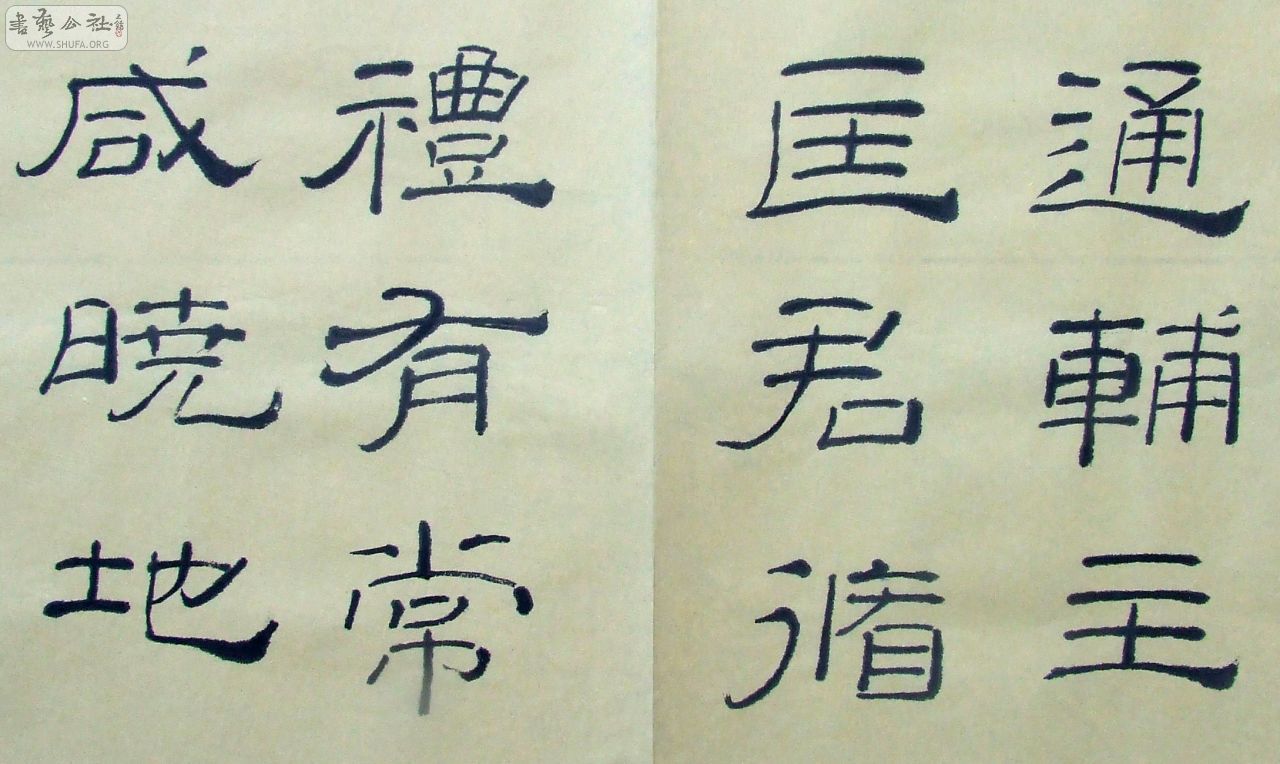 通輔主
匡君循
禮有常
咸曉地
書藝公社
WWW.SHUFA.ORG